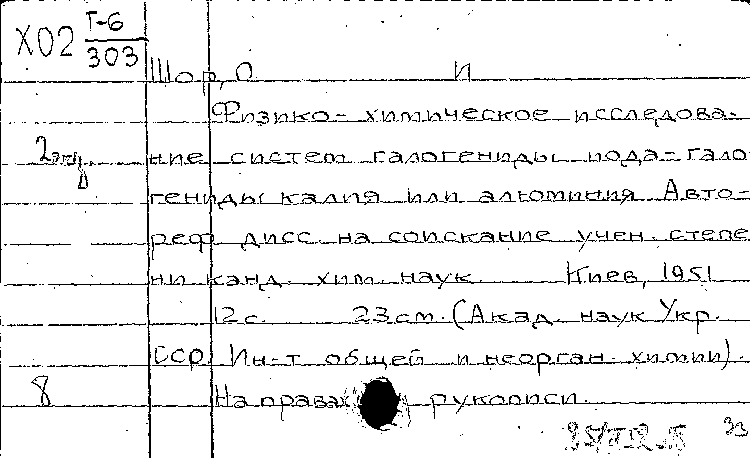 Х02 Г-6/303
Шор, О. И
Физико-химическое исследова-
2экз. ние систем галогениды иода-гало
гениды калия или алюминия Авто-
реф дисс. на соискание учен. степе
ни канд. хим. наук. Киев, 1951
12 с. 23 см. (Акад. наук Укр.
ССР Ин-т общей и неорган. химии).
8 На правах рукописи.